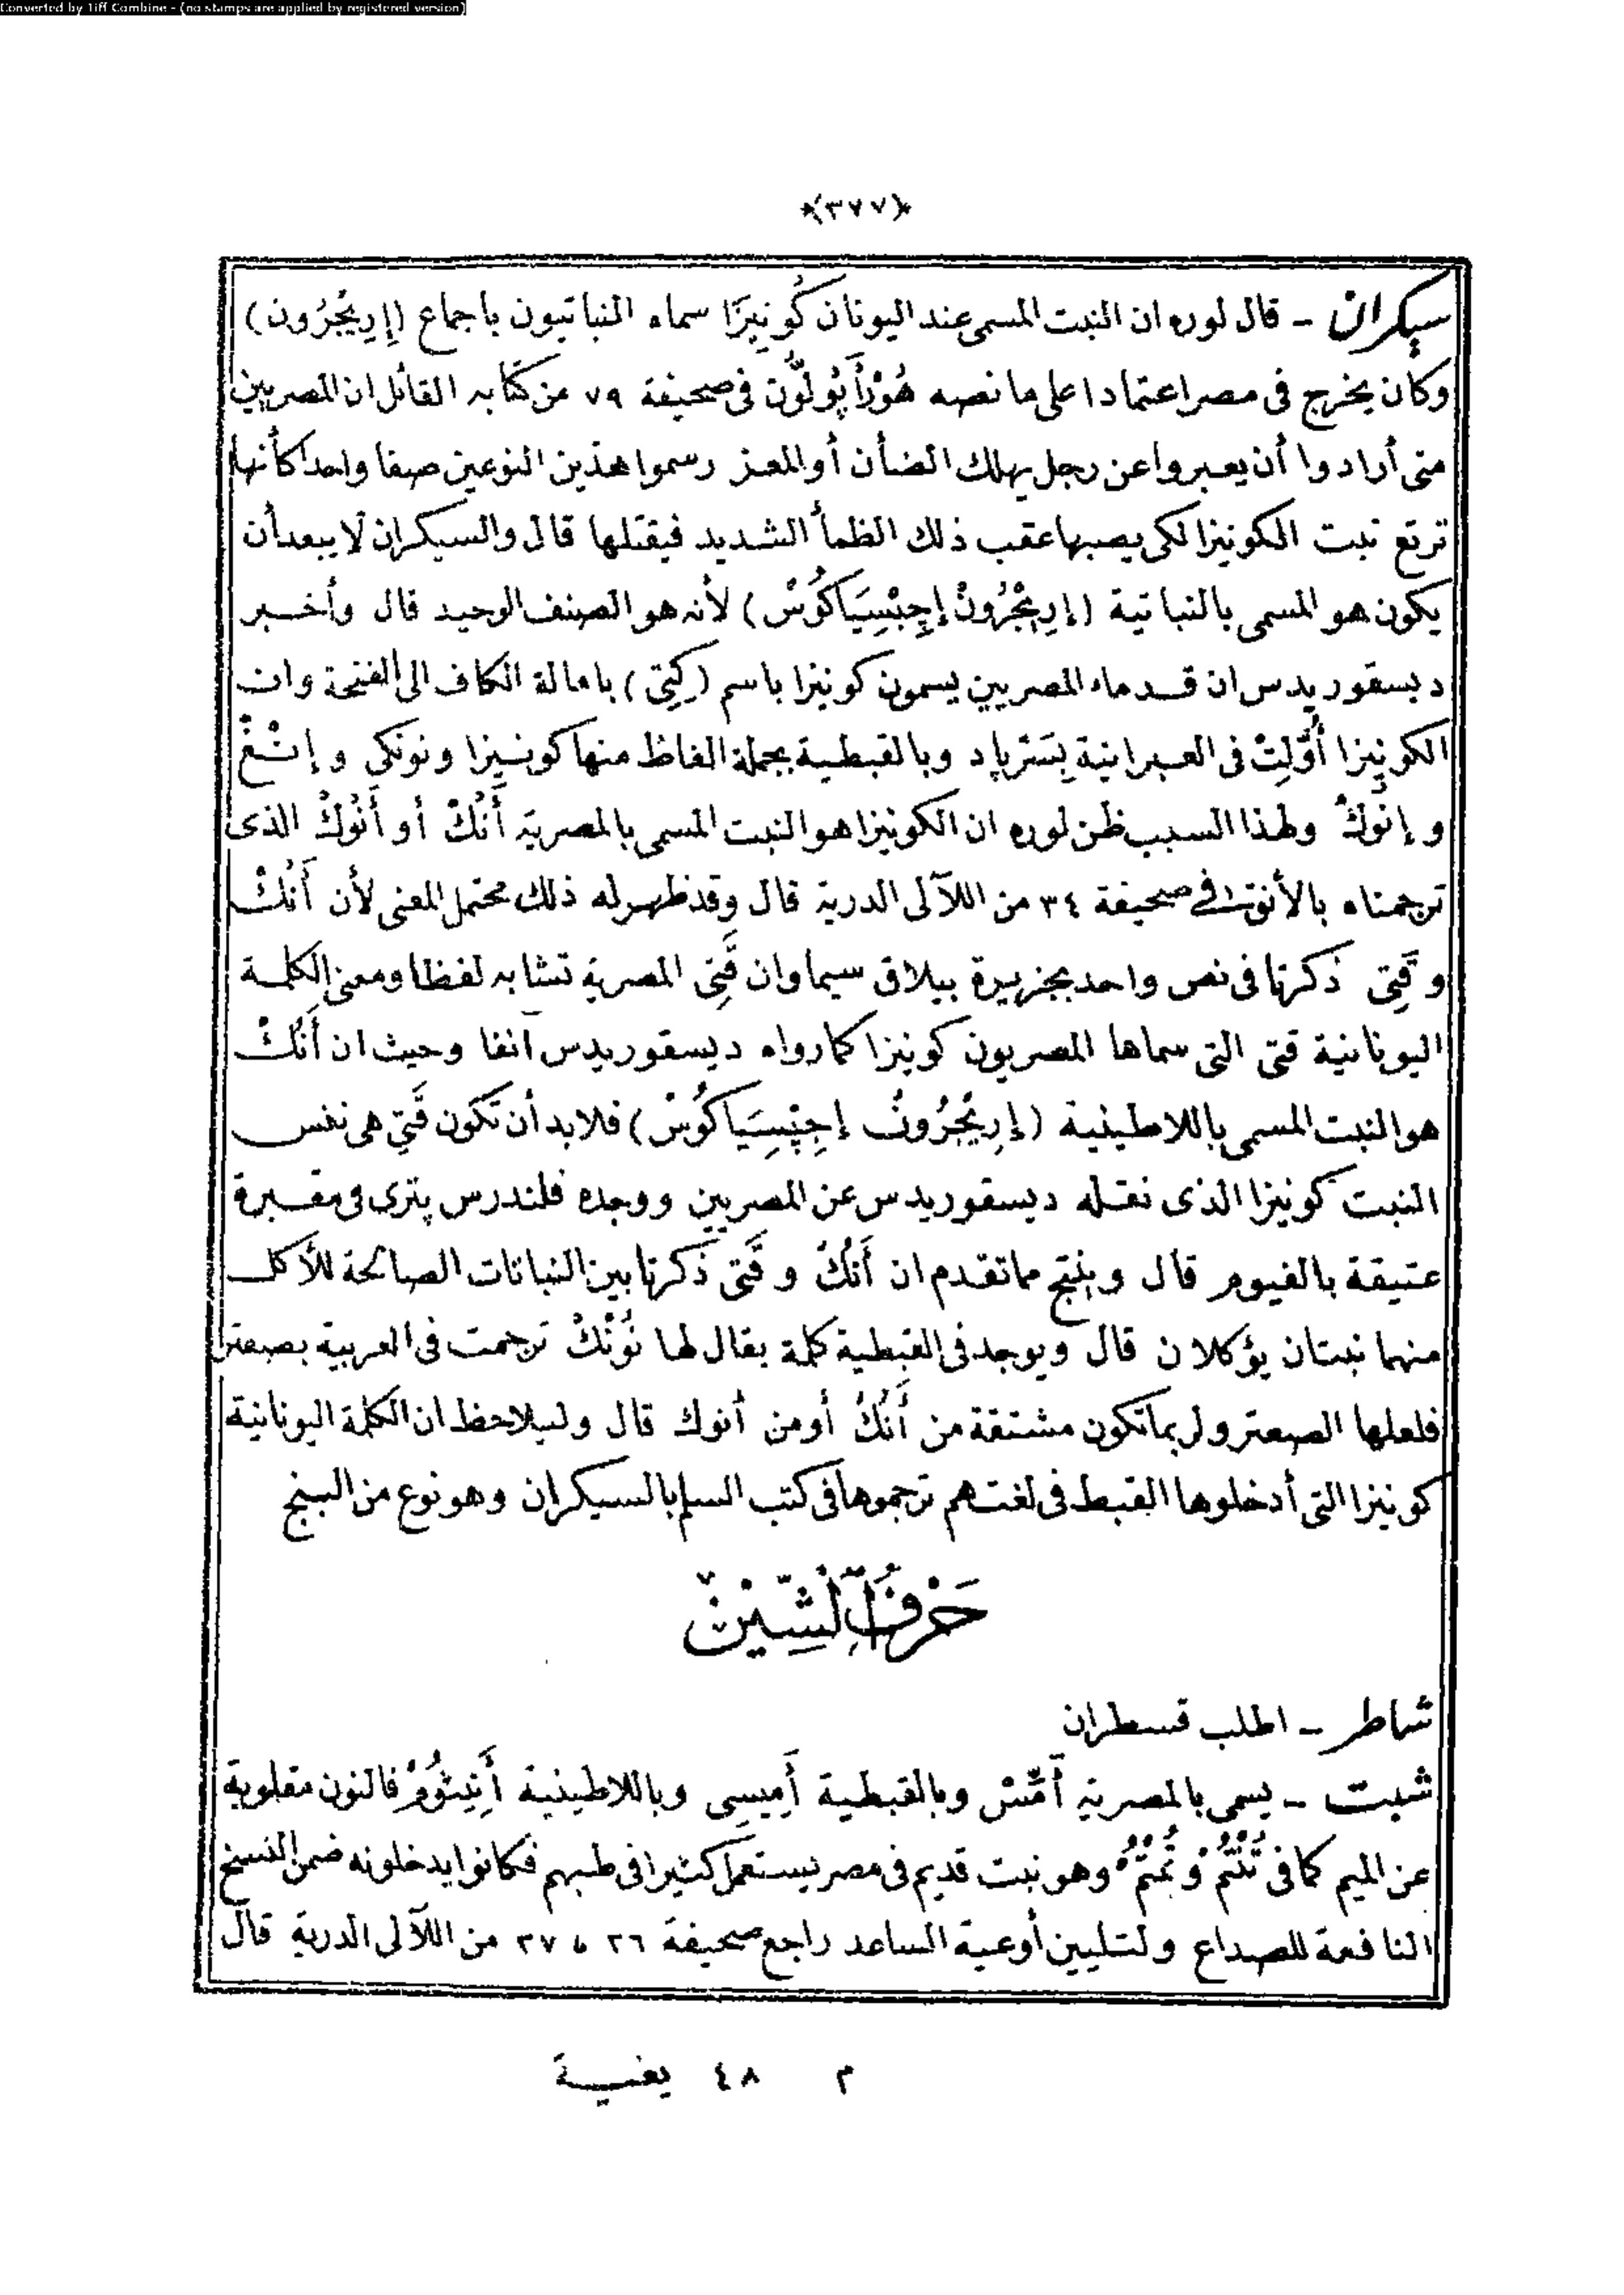 Converted by Tiff Combine - (no stamps are applied by registered version)
﴿٣٧٧﴾
سيكران - قال لوره ان النبت المسمى عند اليونان كُونِيزَا سماه النباتيون باجماع (إِرِيجُرُون)
وكان يخرج فى مصر اعتمادا على ما نصه هُوْرَأَپُولُّون فى صحيفة ٧٩ من كتابه القائل ان المصريين
متى أرادوا أن يعبروا عن رجل يهلك الضأن أو المعز رسموا هذين النوعين صفا واحدا كأنها
ترتع نبت الكونيزا لكى يصبها عقب ذلك الظمأ الشديد فيقتلها قال والسيكران لا يبعد أن
يكون هو المسمى بالنباتية (إِرِيجُرُونْ إِجِبْسِيَاكُوسْ) لأنه هو الصنف الوحيد قال وأخبر
ديسقوريدس ان قدماء المصريين يسمون كونيزا باسم (كِتِى) بامالة الكاف الى الفتحة وان
الكونيزا أُوِّلِتْ فى العبرانية بِسَتْرِيَاد وبالقبطية بجملة الفاظ منها كونيزا ونونكى و
و إِنُوكْ ولهذا السبب ظن لوره ان الكونيزا هو النبت المسمى بالمصرية أَنُكْ أو أَنُوكْ الذى
ترجمناه فى صحيفة ٣٤ من اللآلى الدرية قال وقد ظهر له ذلك محتمل المعنى لأن أَنُكْ
و قَتِى ذكرتا فى نص واحد بجزيرة بيلاق سيما وان قَتِى المصرية تشابه لفظا ومعنى الكلمة
اليونانية قتى التى سماها المصريون كونيزا كما رواه ديسقوريدس آنفا وحيث ان أَنُكْ
هو النبت المسمى باللاطينية (إِرِيجُرُونْ إِجِبْسِيَاكُوسْ) فلا بد أن تكون قَتِى هى نفس
النبت كونيزا الذى نقله ديسقوريدس عن المصريين ووجده فلندرس پترى فى مقبرة
عتيقة بالفيوم قال وينتج مما تقدم ان أَنُكْ و قَتِى ذكرتا بين النباتات الصالحة للأكل
منهما نبتان يؤكلان قال ويوجد فى القبطية كلمة يقال لها نُونْكْ ترجمت فى العربية بصعتر
فلعلها الصعتر ولربما تكون مشتقة من أَنُكْ أو من أنوك قال وليلاحظ ان الكلمة اليونانية
كونيزا التى أدخلوها القبط فى لغتهم ترجموها فى كتب السلم بالسيكران وهو نوع من البنج
حَرْفُ الشِّيْنْ
شاطر - اطلب قسطران
شبت - يسمى بالمصرية أَمِّسْ وبالقبطية أَمِيسِى وباللاطينية أَنِيثُومْ فالنون مقلوبة
عن الميم كما فى وهو نبت قديم فى مصر يستعمل كثيرا فى طبهم فكانوا يدخلونه ضمن النسخ
النافعة للصداع ولتليين أوعية الساعد راجع صحيفة ٢٦ ٣٧ من اللآلى الدرية قال
م ٤٨ بغية